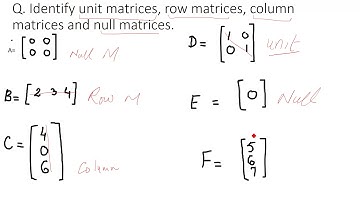 Q. Identify unit matrices, row matrices, column
matrices and null matrices.
A= [0 0
0 0] Null M
D= [1 0
0 1] unit
B= [2 3 4] Row M
E = [0] Null
C= [4
0
6] Column
F= [5
6
7]